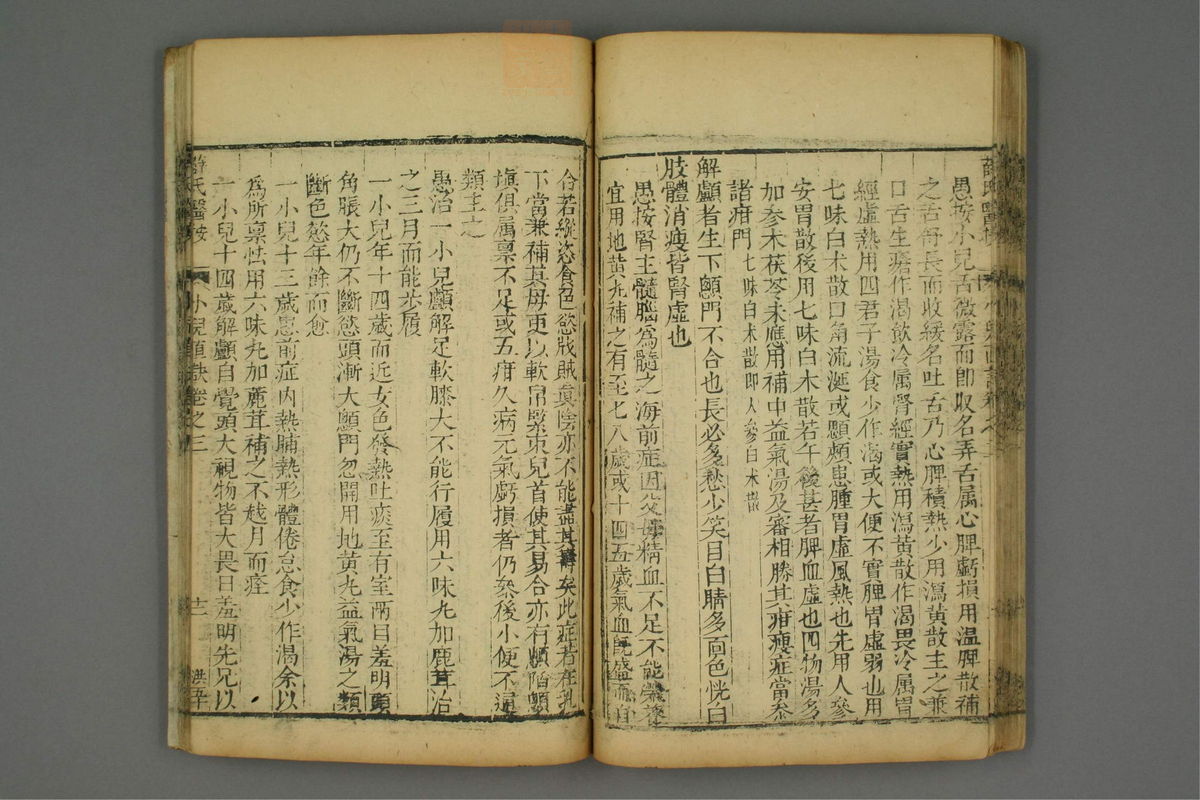 愚按小兒舌微露而即収名弄舌属心脾虧損用温脾散補
之舌舒長而收緩名吐舌乃心脾積熱少用瀉黄散主之兼
口舌生瘡作渴飲冷属腎經實熱用瀉黄散作渴畏冷属胃
經虛熱用四君子湯食少作渴或大便不實脾胃虛弱也用
七味白术散口角流涎或顋頰患腫胃虛風熱也先用人參
安胃散後用七味白术散若午後甚者脾血虛也四物湯多
加参术茯苓未應用補中益氣湯及審相勝其疳瘦症當叅
諸疳門 七味白术散即人參白术散
解顱者生下顖門不合也長必多愁少笑目白睛多面色㿠白
肢體消瘦皆腎虛也
愚按腎主髓腦爲髓之海前症因父母精血不足不能榮養
宜用地黄丸補之有至七八歲或十四五歲氣血旣盛而自
合若縱恣食色慾戕賊眞陰亦不能盡其壽矣此症若在乳
下當兼補其母更以軟帛緊束兒首使其易合亦有顖陷顖
塡俱属禀不足或五疳久病元氣虧損者仍叅後小便不通
類主之
愚治一小兒顱解足軟膝大不能行履用六味丸加鹿茸治
之三月而能步履
一小兒年十四歲而近女色發熱吐痰至有室兩目羞明頭
角脹大仍不斷慾頭漸大顖門忽開用地黄丸益氣湯之類
斷色慾年餘而愈
一小兒十三歲患前症内熱晡熱形體倦怠食少作渴余以
爲所禀怯用六味丸加鹿茸補之不越月而痊
一小兒十四歲解顱自覺頭大視物皆大畏日羞明先兄以
薛氏醫按
小兒直訣卷之三
十二
洪平